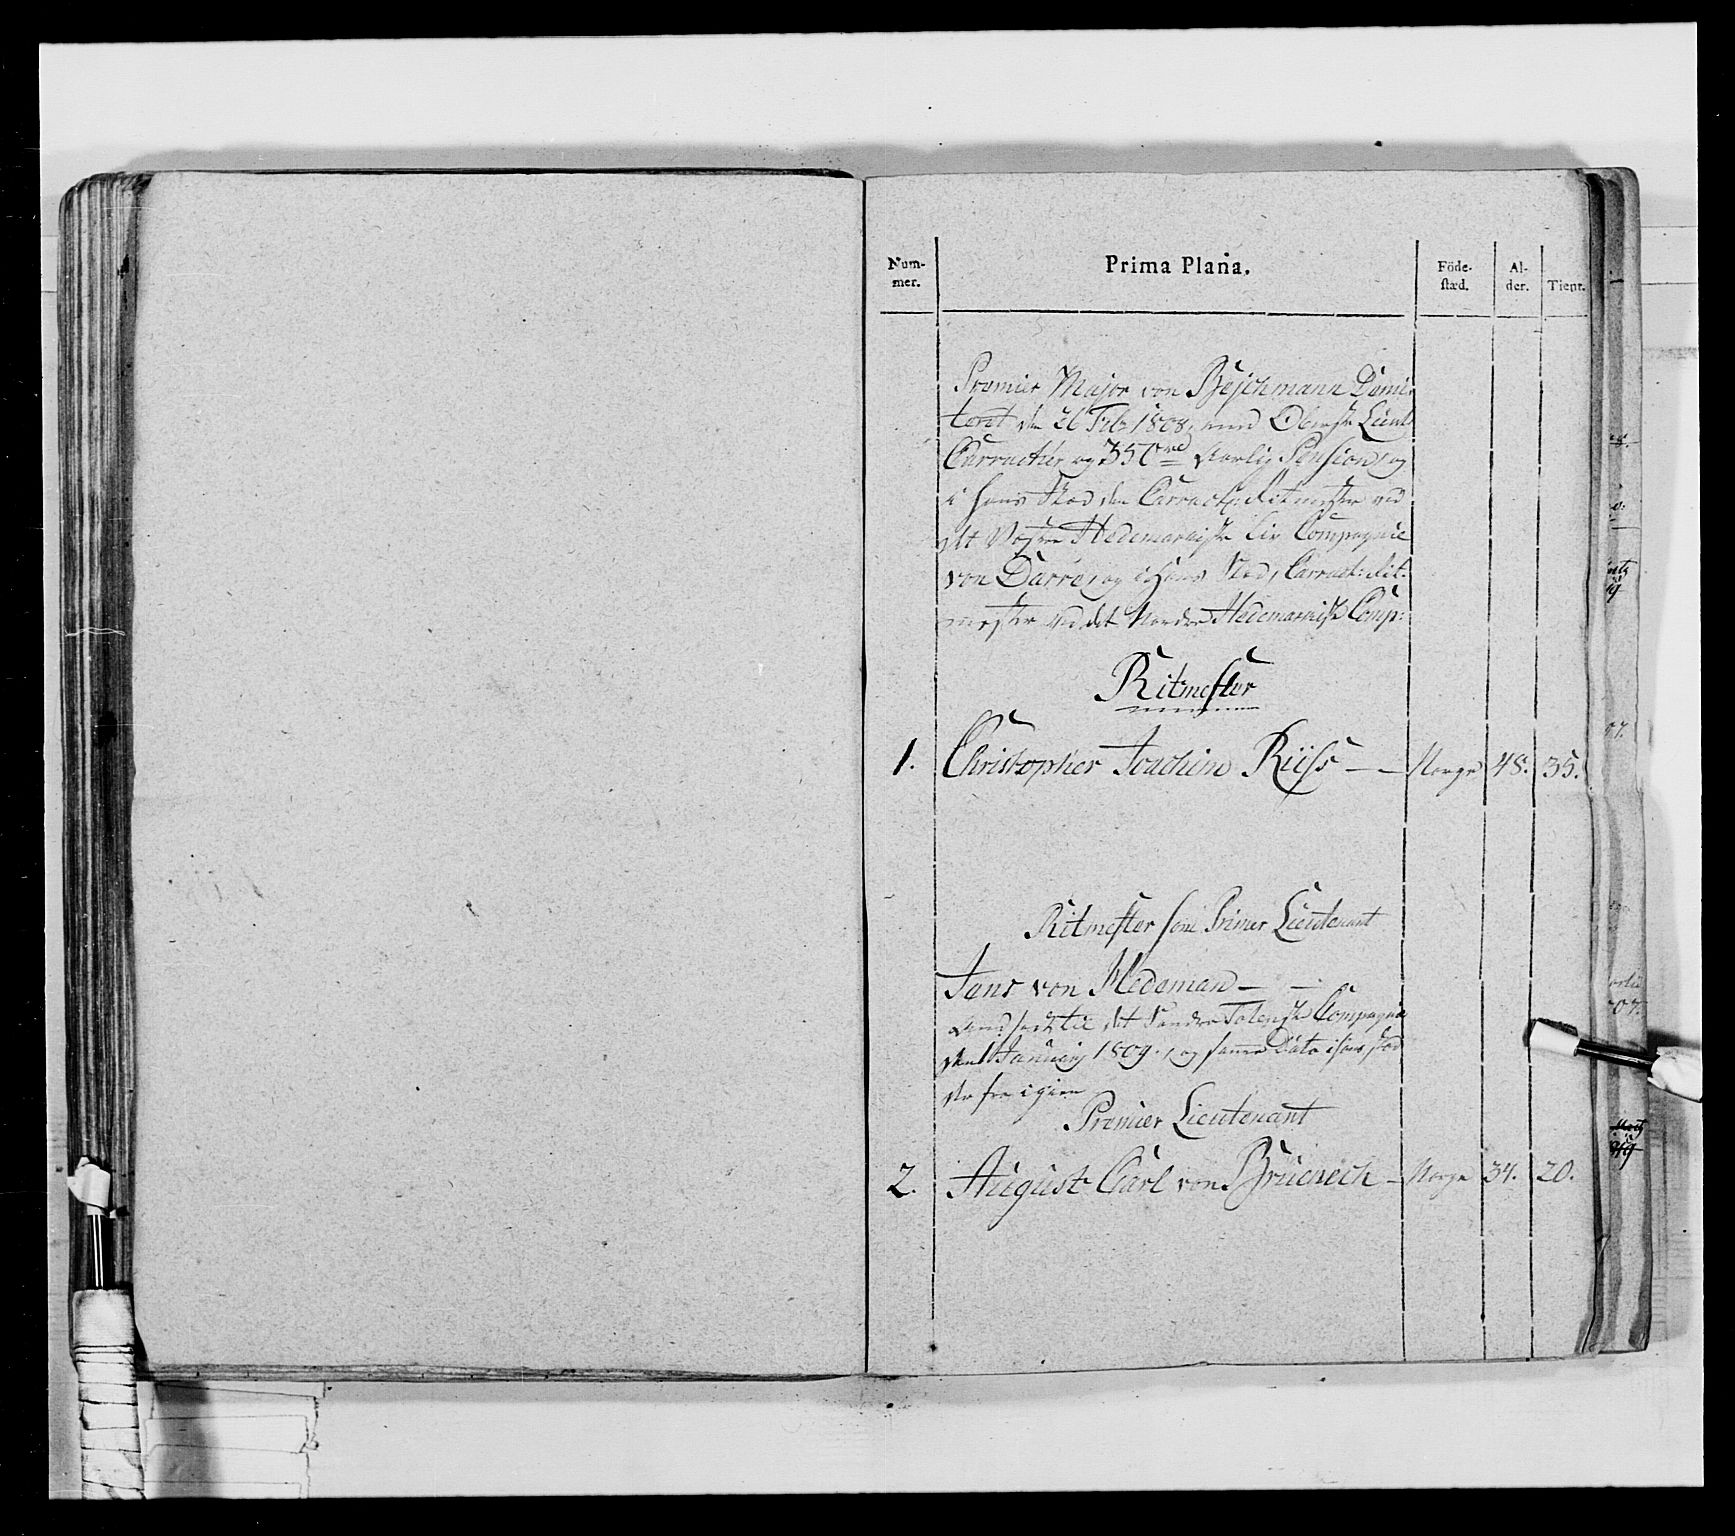 Num-
mer.
Prima Plana.
Föde-
stæd.
Al-
der.
Tient.
Premier Major von Bejchmann Dimit-
teret den 26 Feb 1808, med Oberst Lieut:
Carracteer og 350 rd Aarlig Pension, og
i hans Sted den Carract: Ritmester ved
det Vestre Hedemarkiske Liv Compagnie
von Darre, og i Hans Sted, Carract: Rit-
mester ved det Nordre Hedemarkiske Comp:
Ritmester
1. Christopher Joachim Riiss — — Norge 48. 35.
Ritmester som Primier Lieutenant
Jens von Hedeman — —
til det Søndre Totenske Compagnie
den 1 January 1809, og samme Dato i hans sted
fra igien
Premier Lieutenant
2. August Carl von Bruenech — Norge 34. 20.